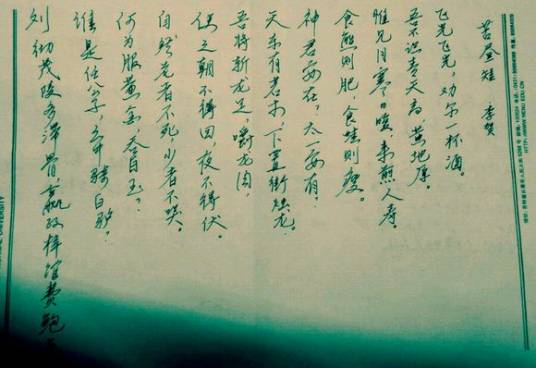 苦昼短 李贺
飞光飞光，劝尔一杯酒。
吾不识青天高，黄地厚。
惟见月寒日暖，来煎人寿。
食熊则肥，食蛙则瘦。
神君安在，太一安有。
天东有若木，下置衔烛龙。
吾将斩龙足，嚼龙肉，
使之朝不得回，夜不得伏。
自然老者不死，少者不哭。
何为服黄金，吞白玉？
谁是任公子，云中骑白驴。
刘彻茂陵多滞骨，嬴政梓棺费鲍